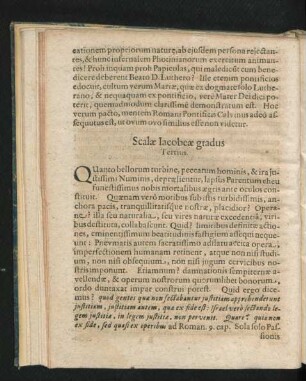 eationem propriorum naturæ, ab ejusdem persona rejectan-
res, & hunc infernalium Phocinianorum exercitum animan-
res? Proh iniquam proh Papicolas, qui maledicere cum bene-
dicere deberent Beato D. Luthero? Iste etenim pontificios
edocuit, cultum verum Mariæ, quæ ex dogmate solo Luthe-
rano, & nequaquam ex pontificio, vere Mater Dei dici po-
terit, quemadmodum clarissime demonstratum est. Hoc
verum pacto, mentem Romano Pontifici Calvinus adeo as-
sequutus est, ut ovum ovo similius esse non videtur.
Scalæ Iacobeæ gradus
Tertius.
QUanto bellorum turbine, peccatum hominis, & ira ju-
stissimi Numinis, deprælientur, lapsus Parentum eheu
funestissimus nobis mortalibus ægris ante oculos con-
stituit. Quænam vero
anchora pacis, tranquillitatisque rectræ, planditur? Opera-
ne? illa seu naturalia, seu vires naturæ excedentia, viri-
bus destituta, collabascunt. Quid? limoribus definitæ actio-
nes, eminentissimum beatitudinis fastigium assequi neque-
unt: Pnevmatis autem sacratissimo adflatu actua opera,
imperfectionem humanam retinent, atque non nisi studi-
um, non nisi obsequium, non nisi jugum cervicibus no-
stris imponunt. Etiamnum? damnationis sempiternæ a-
vellendæ, & operum nostrorum quorumlibet bonorum,
ordo duntaxat impar construi potest. Quid ergo dice-
mus? quod gentes quæ non sectabantur justitiam apprehenderunt
justitiam, justitiam autem, quæ ex fide est: Israel vero sectando le-
gem justitiæ, in legem justitiæ, non pervenit. Quare? quia non
ex fide, sed quasi ex operibus ad Roman. 9. cap. Sola solo Pas-
sionis